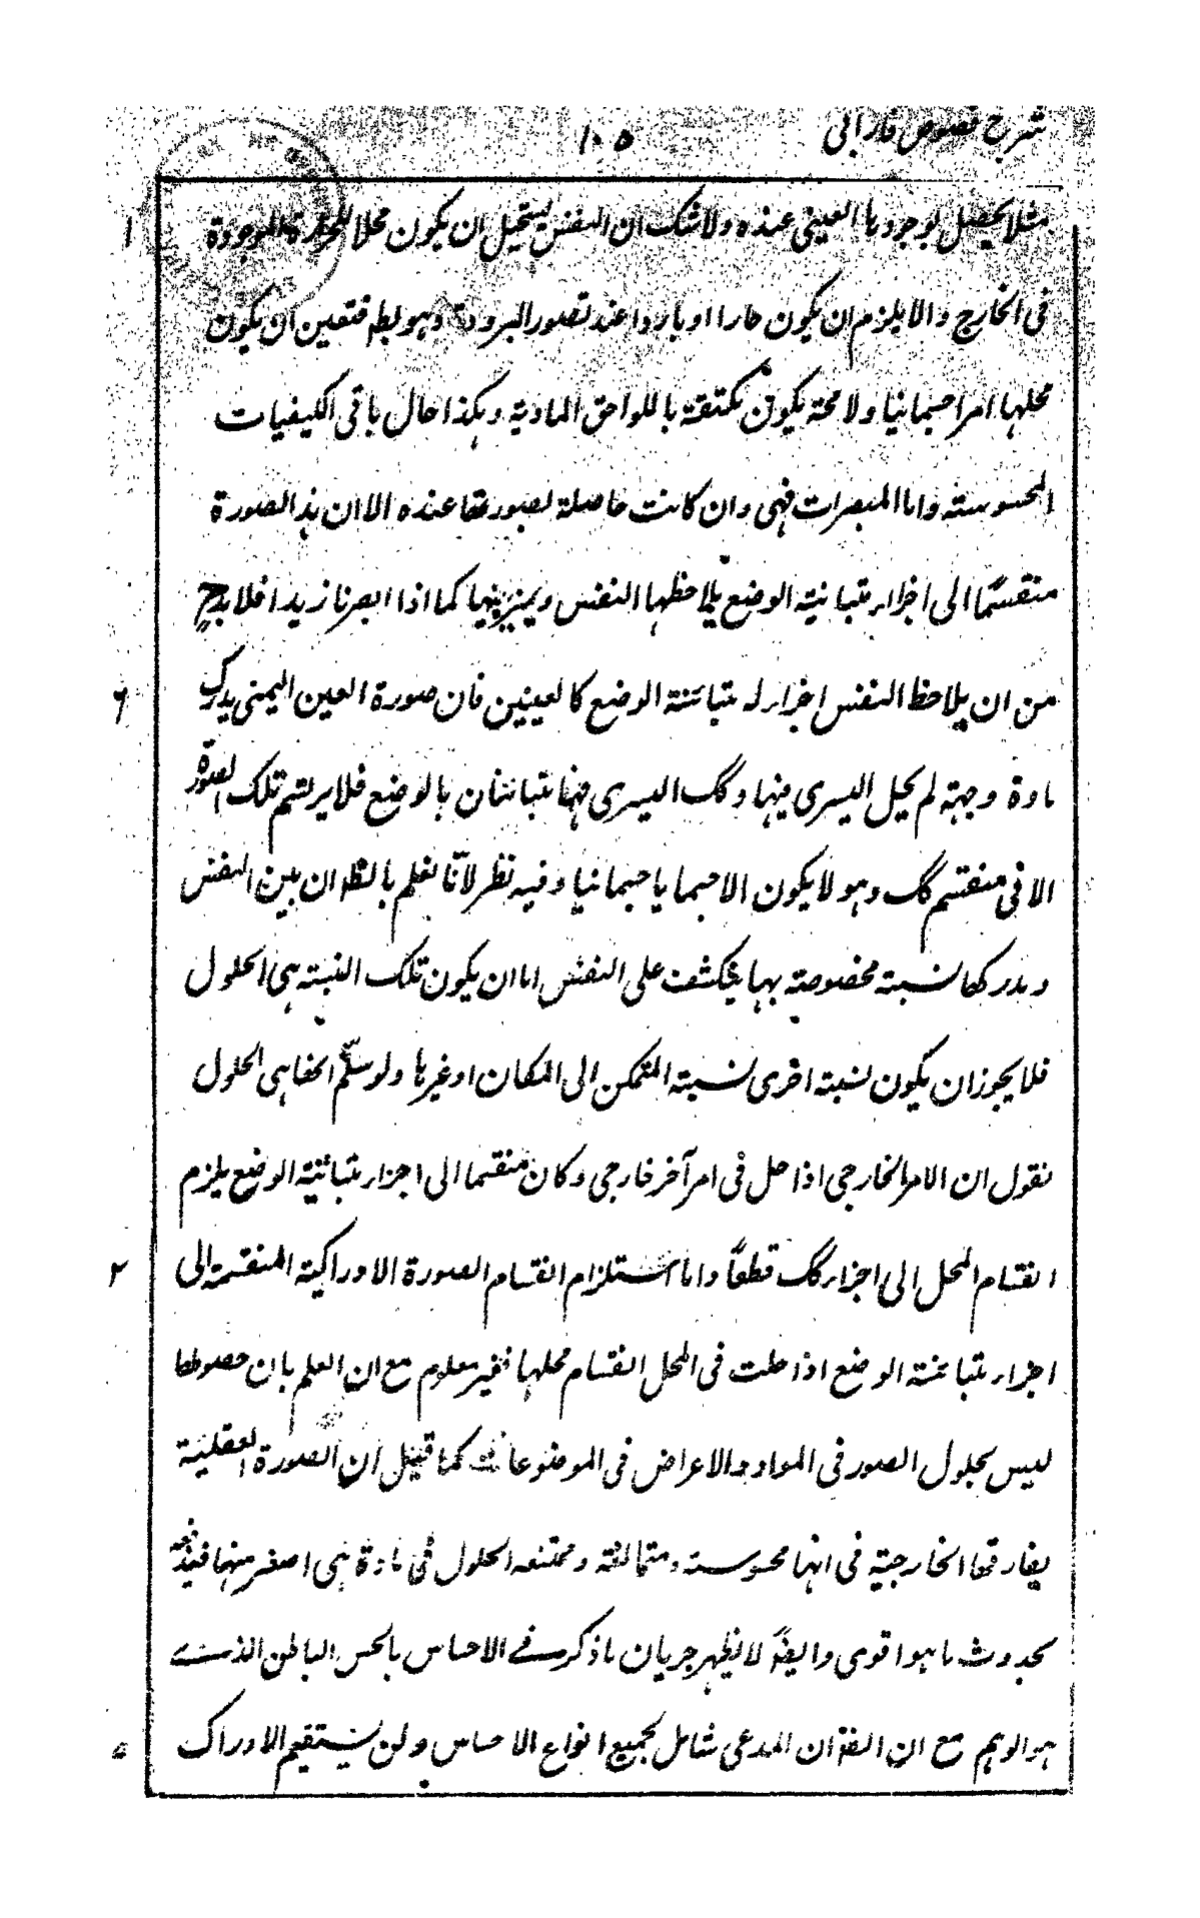 شرح فصوص فارابی
۱۰۵
مثلا يحصل لوجودها العينى عنده ولا شك ان النفس يستحيل ان يكون محلا للحرارة الموجودة
۱
فى الخارج والا يلزم ان يكون حارا او باردا عند تصور البرودة وهو بط فتعين ان يكون
محلها امرا جسمانيا ولا محة يكون مكتنفة باللواحق المادية وهكذا حال باقى الكيفيات
المحسوسة واما المبصرات فهى وان كانت حاصلة بصورتها عنده الا ان هذه الصورة
منقسمة الى اجزاء متباينة الوضع يلاحظها النفس ويميز بينها كما اذا ابصرنا زيدا فلا بد
من ان يلاحظ النفس اجزاء له متبائنة الوضع كالعينين فان صورة العين اليمنى يدرك
۶
مادة وجهة لم يحل اليسرى فيها وكك اليسرى فهما متباينان بالوضع فلا يرتسم تلك الصورة
الا فى منقسم كك وهو لا يكون الا جسما يا جسمانيا وفيه نظر لانا نعلم بالظ ان بين النفس
ومدركها نسبة مخصوصة بها ينكشف على النفس اما ان يكون تلك النسبة هى الحلول
فلا يجوز ان يكون نسبة اخرى نسبة المتمكن الى المكان او غيرها ولو سلم انها هى الحلول
نقول ان الامر الخارجى اذا حل فى امر آخر خارجى وكان منقسما الى اجزاء متبائنة الوضع يلزم
انقسام المحل الى اجزاء كك قطعًا واما استلزام انقسام الصورة الادراكية المنقسمة الى
۲
اجزاء متبائنة الوضع اذا حلت فى المحل انقسام محلها فغير معلوم مع ان العلم بان حصولها
ليس بحلول الصور فى المواد والاعراض فى الموضوعات كما قيل ان الصورة العقلية
يفارقها الخارجية فى انها محسوسة ومتمانعة وممتنعه الحلول فى مادة هى اصغر منها
بحدوث ما هو اقوى وايضًا لا يظهر جريان ما ذكر فى الاحساس بالحس الباطن الذى
هو الوهم مع ان المدعى شامل لجميع انواع الاحساس ولن يستقيم الادراك